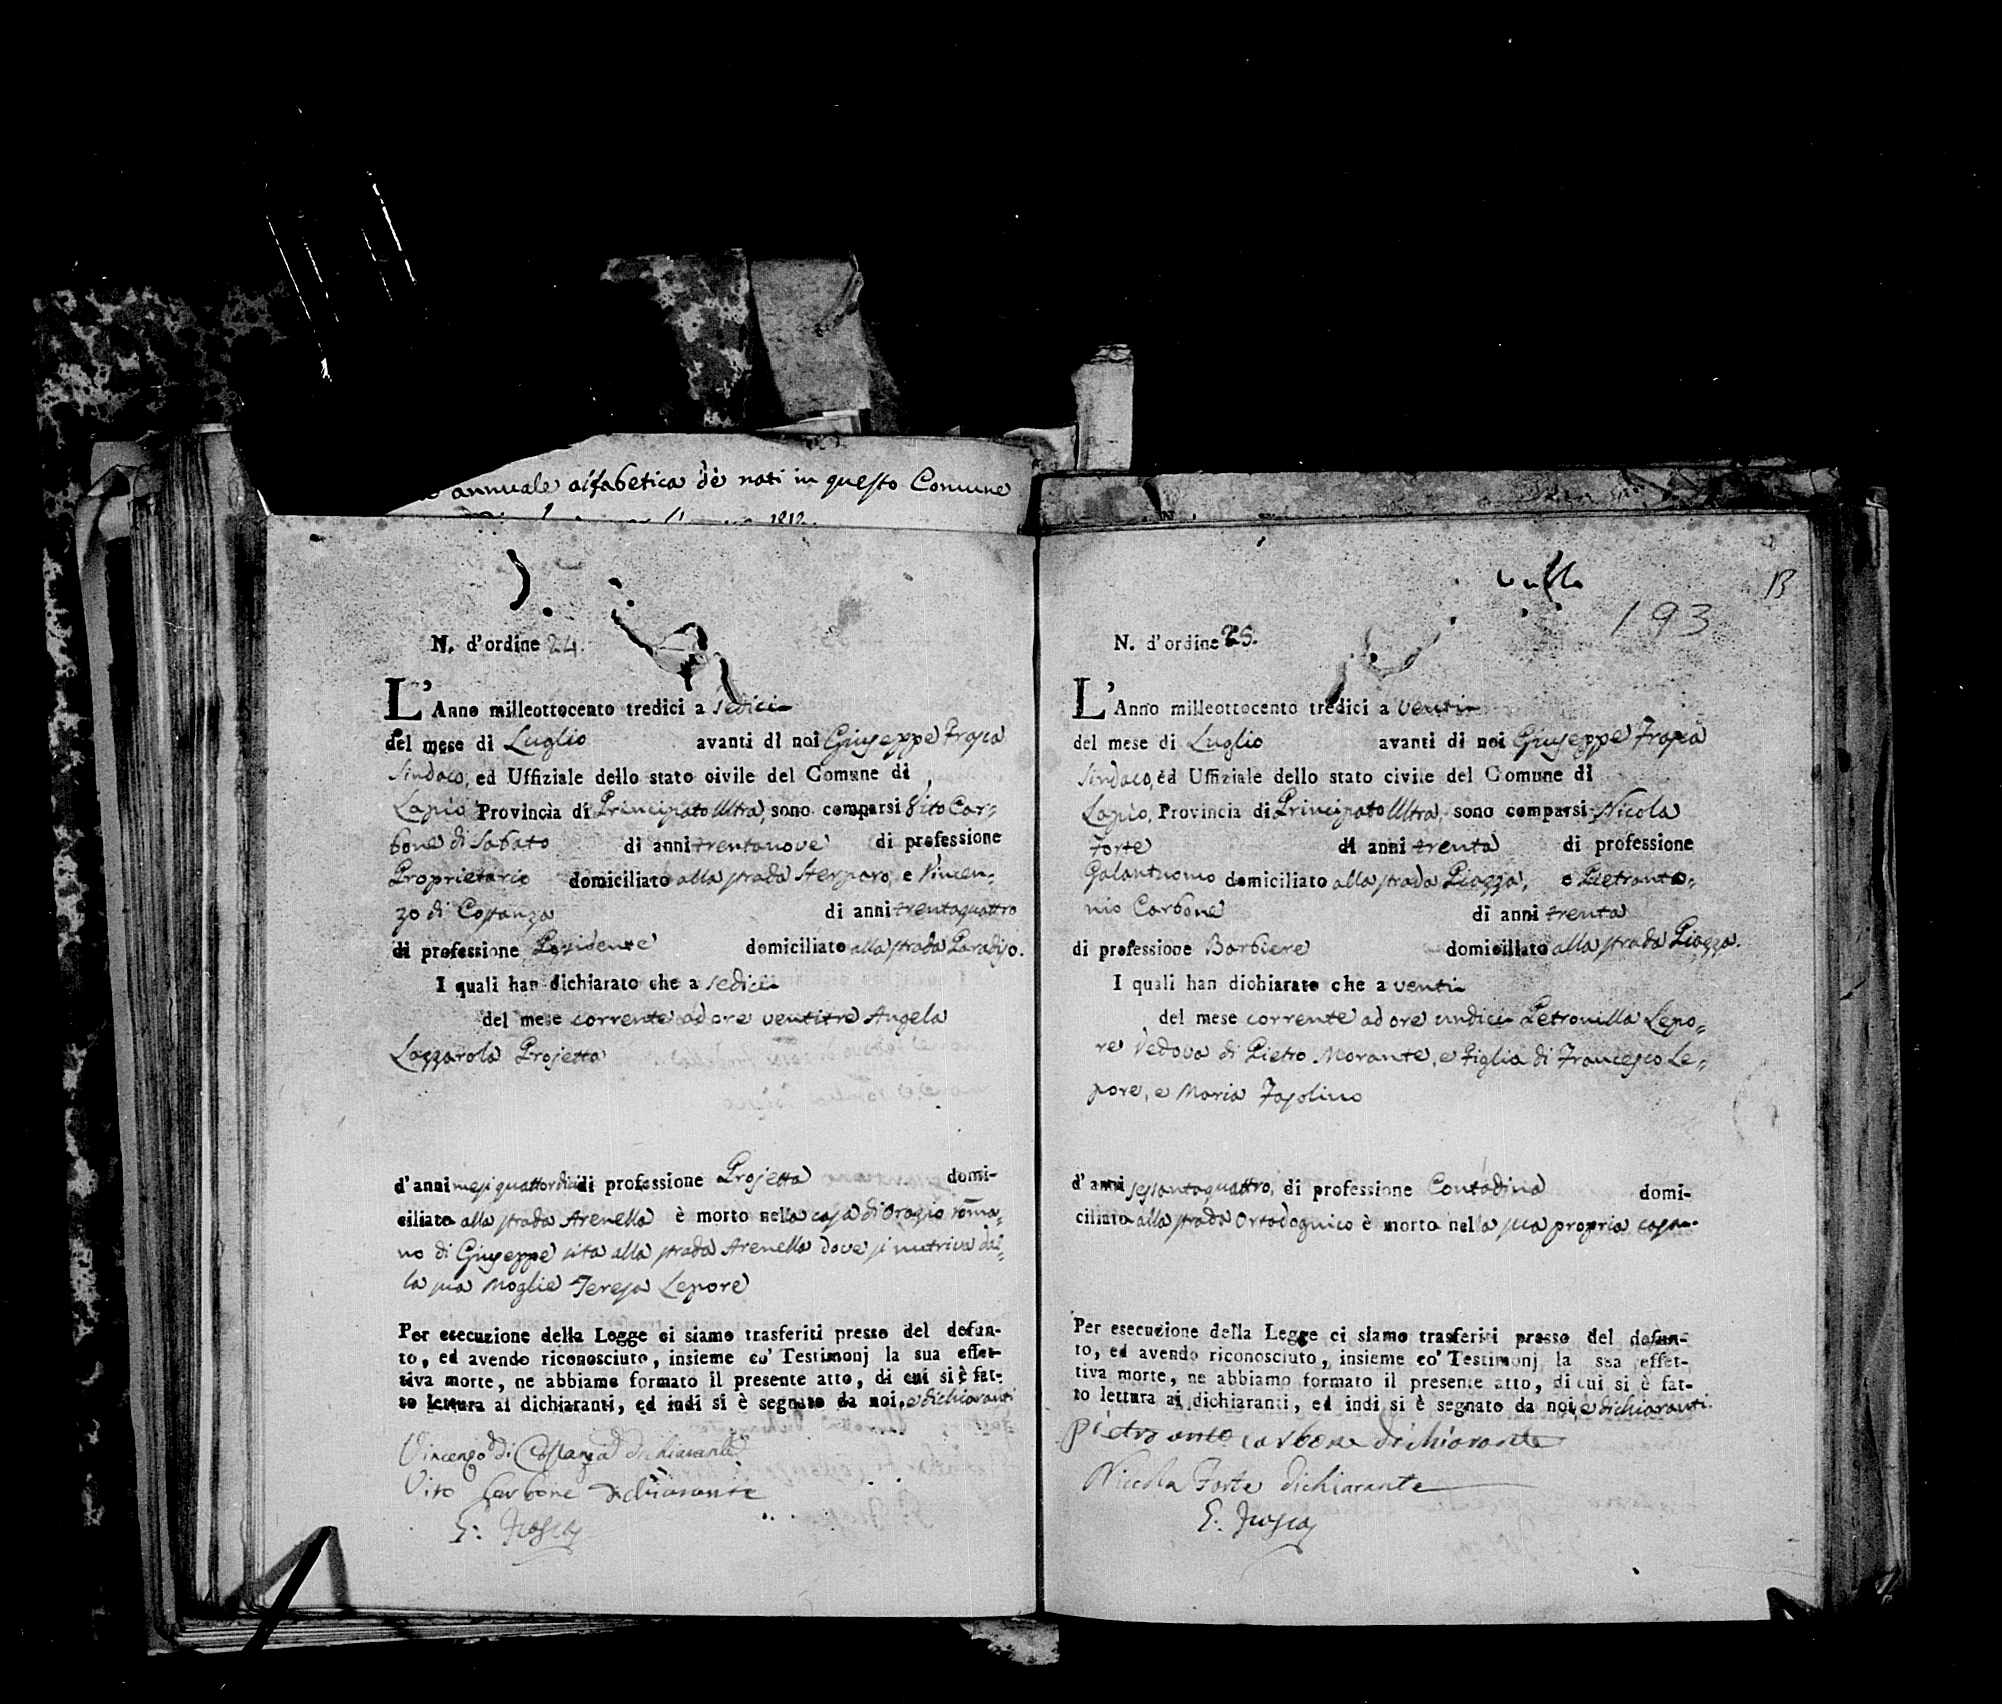 annuale alfabetica de nati in questo Comune
N. d'ordine 24.
L'Anno milleottocento tredici a sedici
del mese di Luglio avanti di noi Giuseppe Frasca
Sindaco, ed Uffiziale dello stato civile del Comune di
Lapio Provincia di Principato Ultra, sono comparsi Vito Car-
bone di Sabato di anni trentanove di professione
Proprietario domiciliato alla strada Sterparo, e Vincen-
zo di Costanza di anni trentaquattro
di professione Possidente domiciliato alla strada Paradiso.
I quali han dichiarato che a sedici
del mese corrente ad ore ventitre Angela
Lazzarola Projetta
d'anni mesi quattordici di professione Projetta domi-
ciliato alla strada Arenella è morto nella casa di Orazio Roma-
no di Giuseppe sita alla strada Arenella dove si nutriva dal-
la sua Moglie Teresa Lepore
Per esecuzione della Legge ci siamo trasferiti presso del defun-
to, ed avendo riconosciuto, insieme co' Testimonj la sua effet-
tiva morte, ne abbiamo formato il presente atto, di cui si è fat-
to lettura ai dichiaranti, ed indi si è segnato da noi, e dichiaranti
Vincenzo di Costanza dichiarante
Vito Carbone dichiarante
G. Frasca
13
193
N. d'ordine 25.
L'Anno milleottocento tredici a venti
del mese di Luglio avanti di noi Giuseppe Frasca
Sindaco, ed Uffiziale dello stato civile del Comune di
Lapio, Provincia di Principato Ultra, sono comparsi Nicola
Forte di anni trenta di professione
Galantuomo domiciliato alla strada Piazza, e Pietranto-
nio Carbone di anni trenta
di professione Barbiere domiciliato alla strada Piazza.
I quali han dichiarato che a venti
del mese corrente ad ore undici Petronilla Lepo-
re Vedova di Pietro Morante, e Figlia di Francesco Le-
pore, e Maria Fasolino
d'anni sessantaquattro, di professione Contadina domi-
ciliato alla strada è morto nella sua propria casa
Per esecuzione della Legge ci siamo trasferiti presso del defun-
to, ed avendo riconosciuto, insieme co' Testimonj la sua effet-
tiva morte, ne abbiamo formato il presente atto, di cui si è fat-
to lettura ai dichiaranti, ed indi si è segnato da noi, e dichiaranti.
Pietro anto carbone dichiarante
Niccola Forte dichiarante
G. Frasca